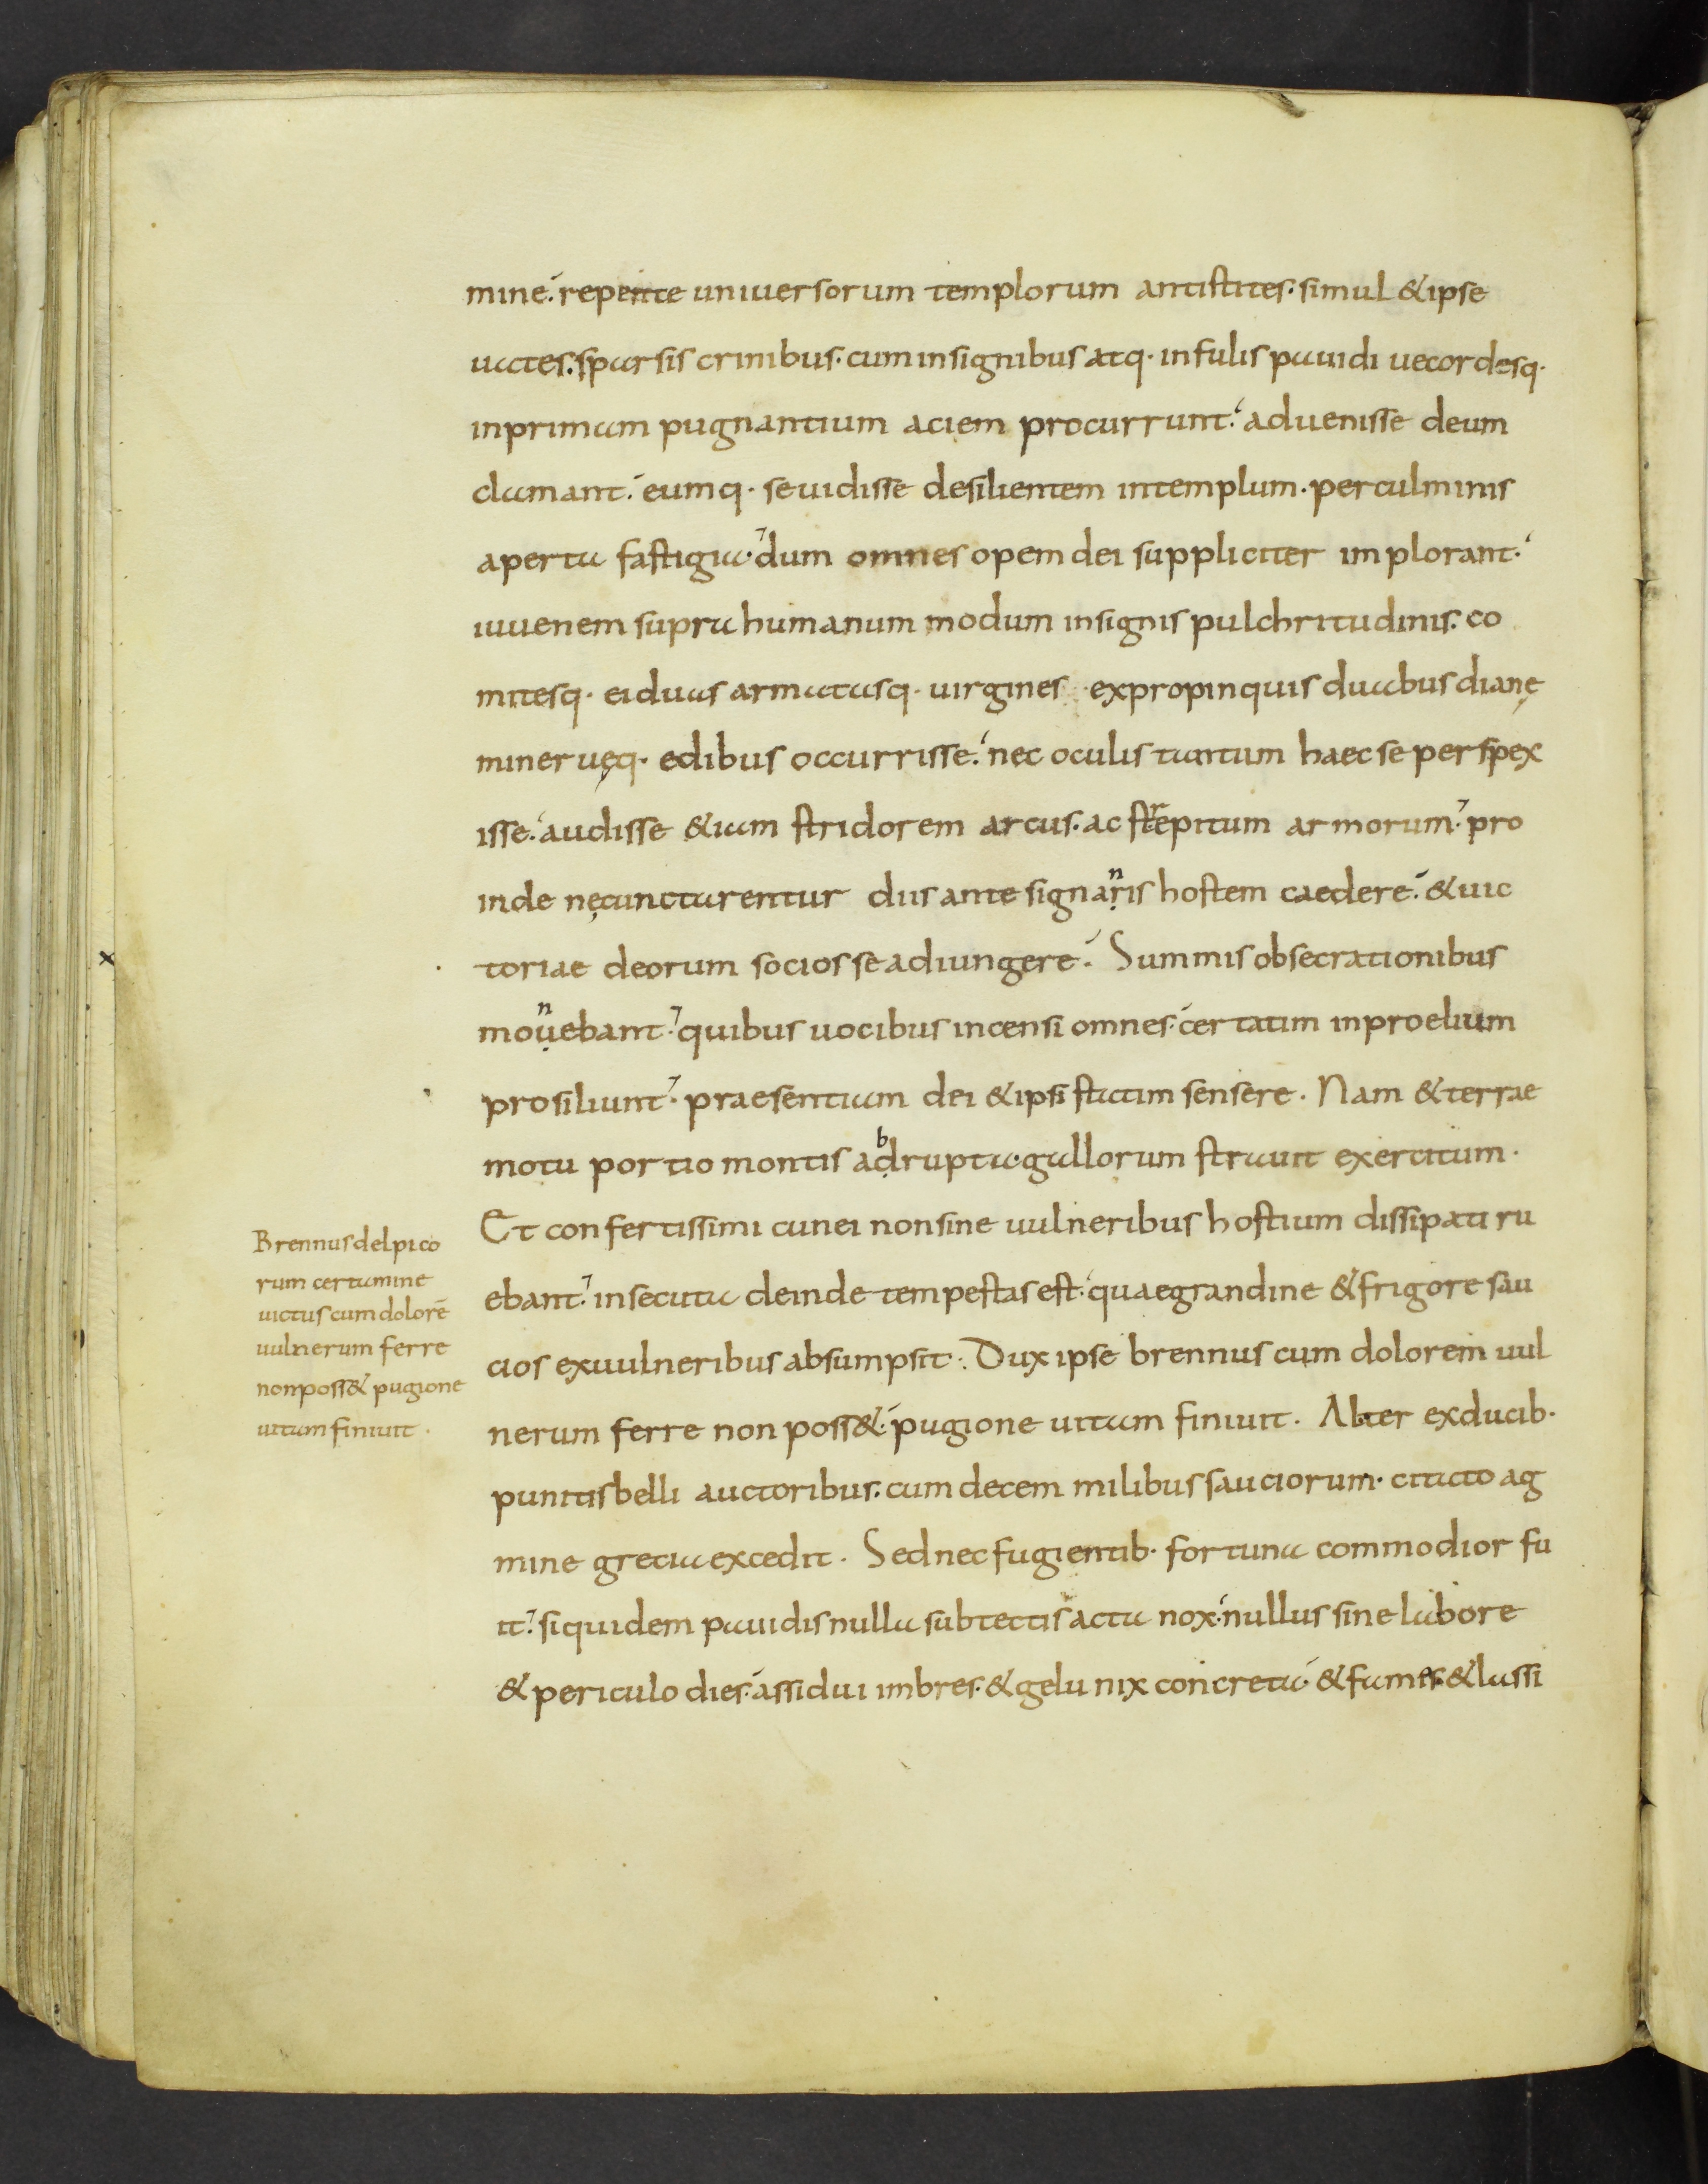 mine. repente uniuersorum templorum antistites. simul & ipse
uates. sparsis crinibus. cum insignibus atq. infulis pauidi uecordesq.
in primam pugnantium aciem procurrunt. aduenisse deum
clamant. eumq. se uidisse desilientem in templum. per culminis
aperta fastigia. dum omnes opem dei suppliciter implorant.
iuuenem supra humanum modum insignis pulchritudinis. co
mitesq. ei duas armatasq. uirgines ex propinquis duabus dianę
mineruęq. edibus occurrisse. nec oculis tantum haec se perspex
isse. audisse & iam stridorem arcus. ac strepitum armorum. pro
inde nęcunctarentur diis ante signanis hostem caedere. & uic
toriae deorum socios se adiungere. Summis obsecrationibus
monebant. quibus uocibus incensi omnes. certatim in proelium
prosiliunt. praesentiam dei & ipsi statim sensere. Nam & terrae
motu portio montis abrupta. gallorum strauit exercitum.
Et confertissimi cunei non sine uulneribus hostium dissipati ru
ebant. insecuta deinde tempestas est. quae grandine & frigore sau
cios ex uulneribus absumpsit. Dux ipse brennus cum dolorem uul
nerum ferre non poss&. pugione uitam finiuit. Alter ex ducib.
punitis belli auctoribus. cum decem milibus sauciorum. citato ag
mine grecia excedit. Sed nec fugientib. fortuna commodior fu
it. siquidem pauidis nulla sub tectis acta nox. nullus sine labore
& periculo dies. assidui imbres. & gelu nix concreta. & fames. & lassi
Brennus delpico
rum certamine
uictus cum dolorē
uulnerum ferre
non poss& pugione
uitam finiuit.